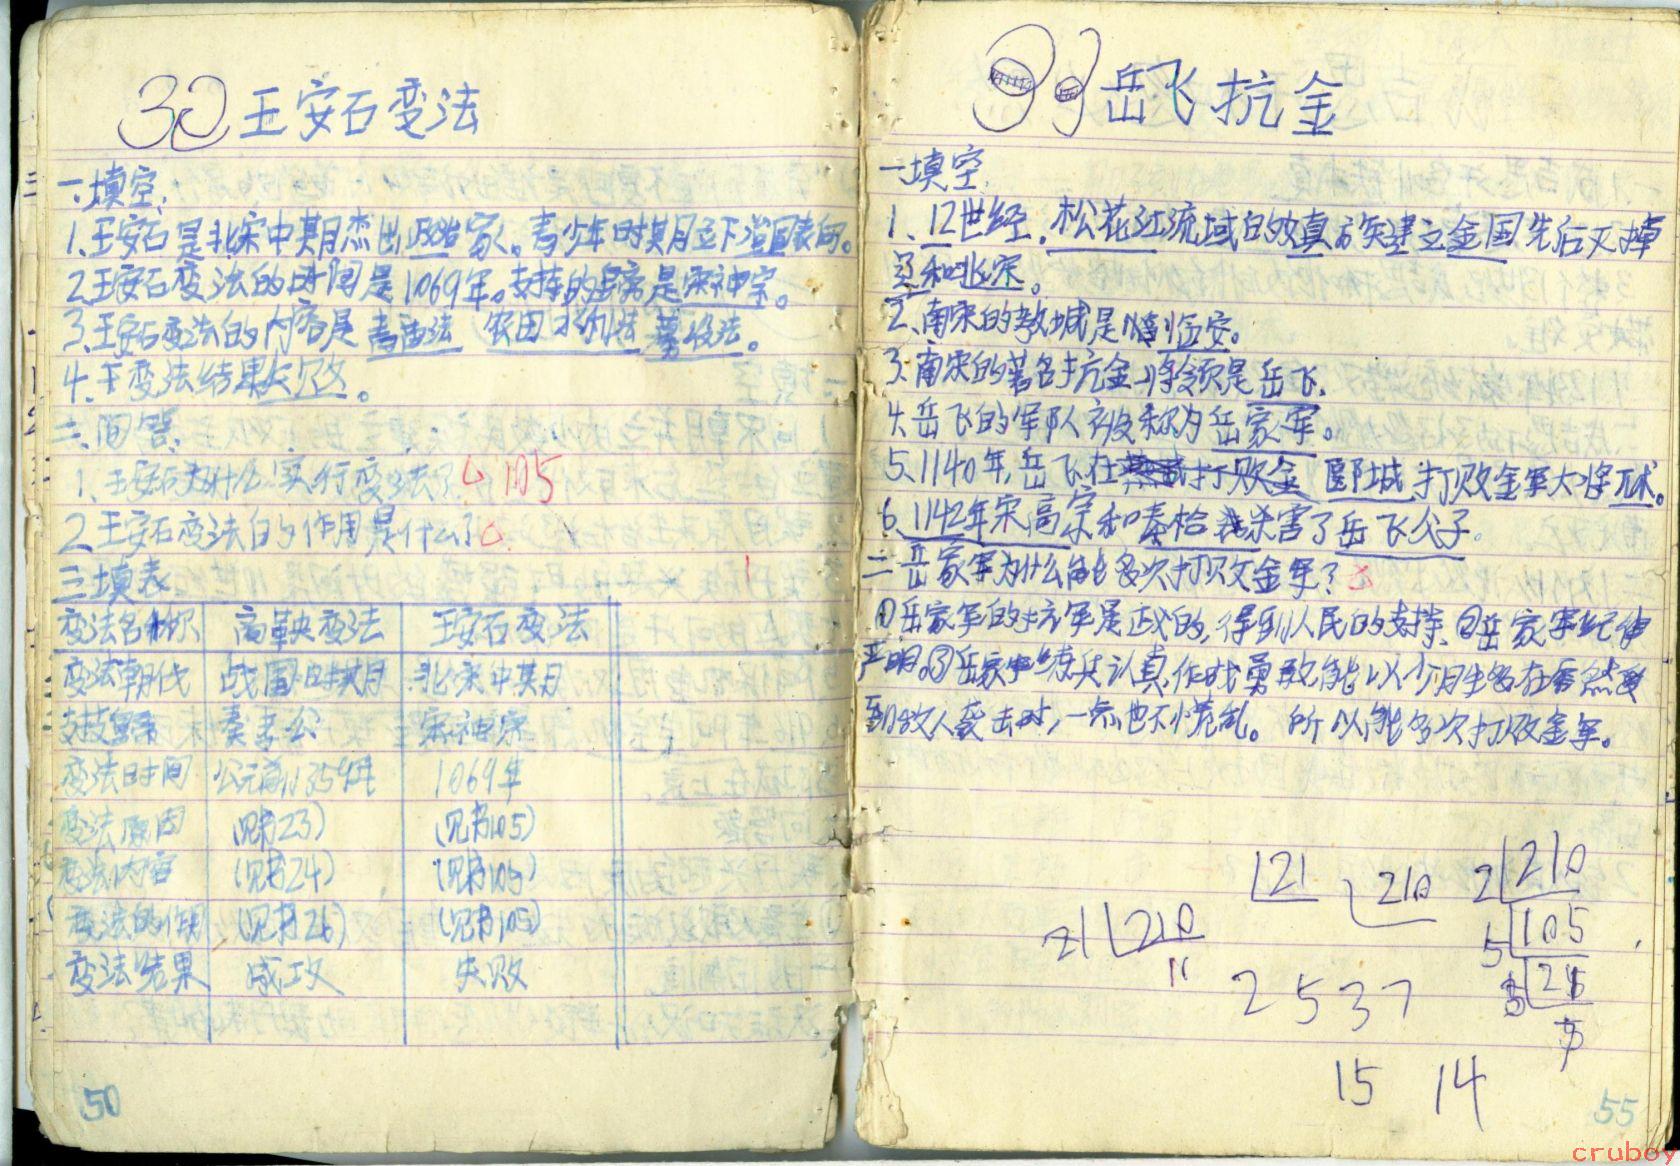 30 王安石变法
一、填空：
1、王安石是北宋中期杰出政治家。青少年时期立下
2、王安石变法的时间是1069年。支持的皇帝是宋神宗。
3、王安石变法的内容是青苗法 农田水利法 募役法。
4、王变法结果失败。
二、问答：
1、王安石为什么实行变法？ 105
2、王安石变法的作用是什么？
三、填表
变法名称 商鞅变法 王安石变法
变法朝代 战国时期 北宋中期
秦孝公 宋神宗
变法时间 公元前359年 1069年
变法原因 (见书23) (见书105)
变法内容 (见书24) (见书105)
变法的作用 (见书26) (见书105)
变法结果 成功 失败
50
岳飞抗金
一、填空：
1、12世纪，松花江流域的女真族建立金国先后灭掉
辽和北宋。
2、南宋的都城是临安。
3、南宋的著名抗金将领是岳飞。
4、岳飞的军队被称为岳家军。
5、1140年，岳飞在 打败金 郾城 打败金军大将兀术。
6、1142年宋高宗和秦桧 杀害了岳飞父子。
二、岳家军为什么能多次打败金军？
①岳家军的抗军是正义的，得到人民的支持、②岳家军纪律
严明。③岳家军练兵认真，作战勇敢能以少胜多在 然
到敌人袭击时，一点也不慌乱。所以能多次打败金军。
21 210 2 210
21 210 5 105
11 21
2 5 3 7
15 14
55
cruboy